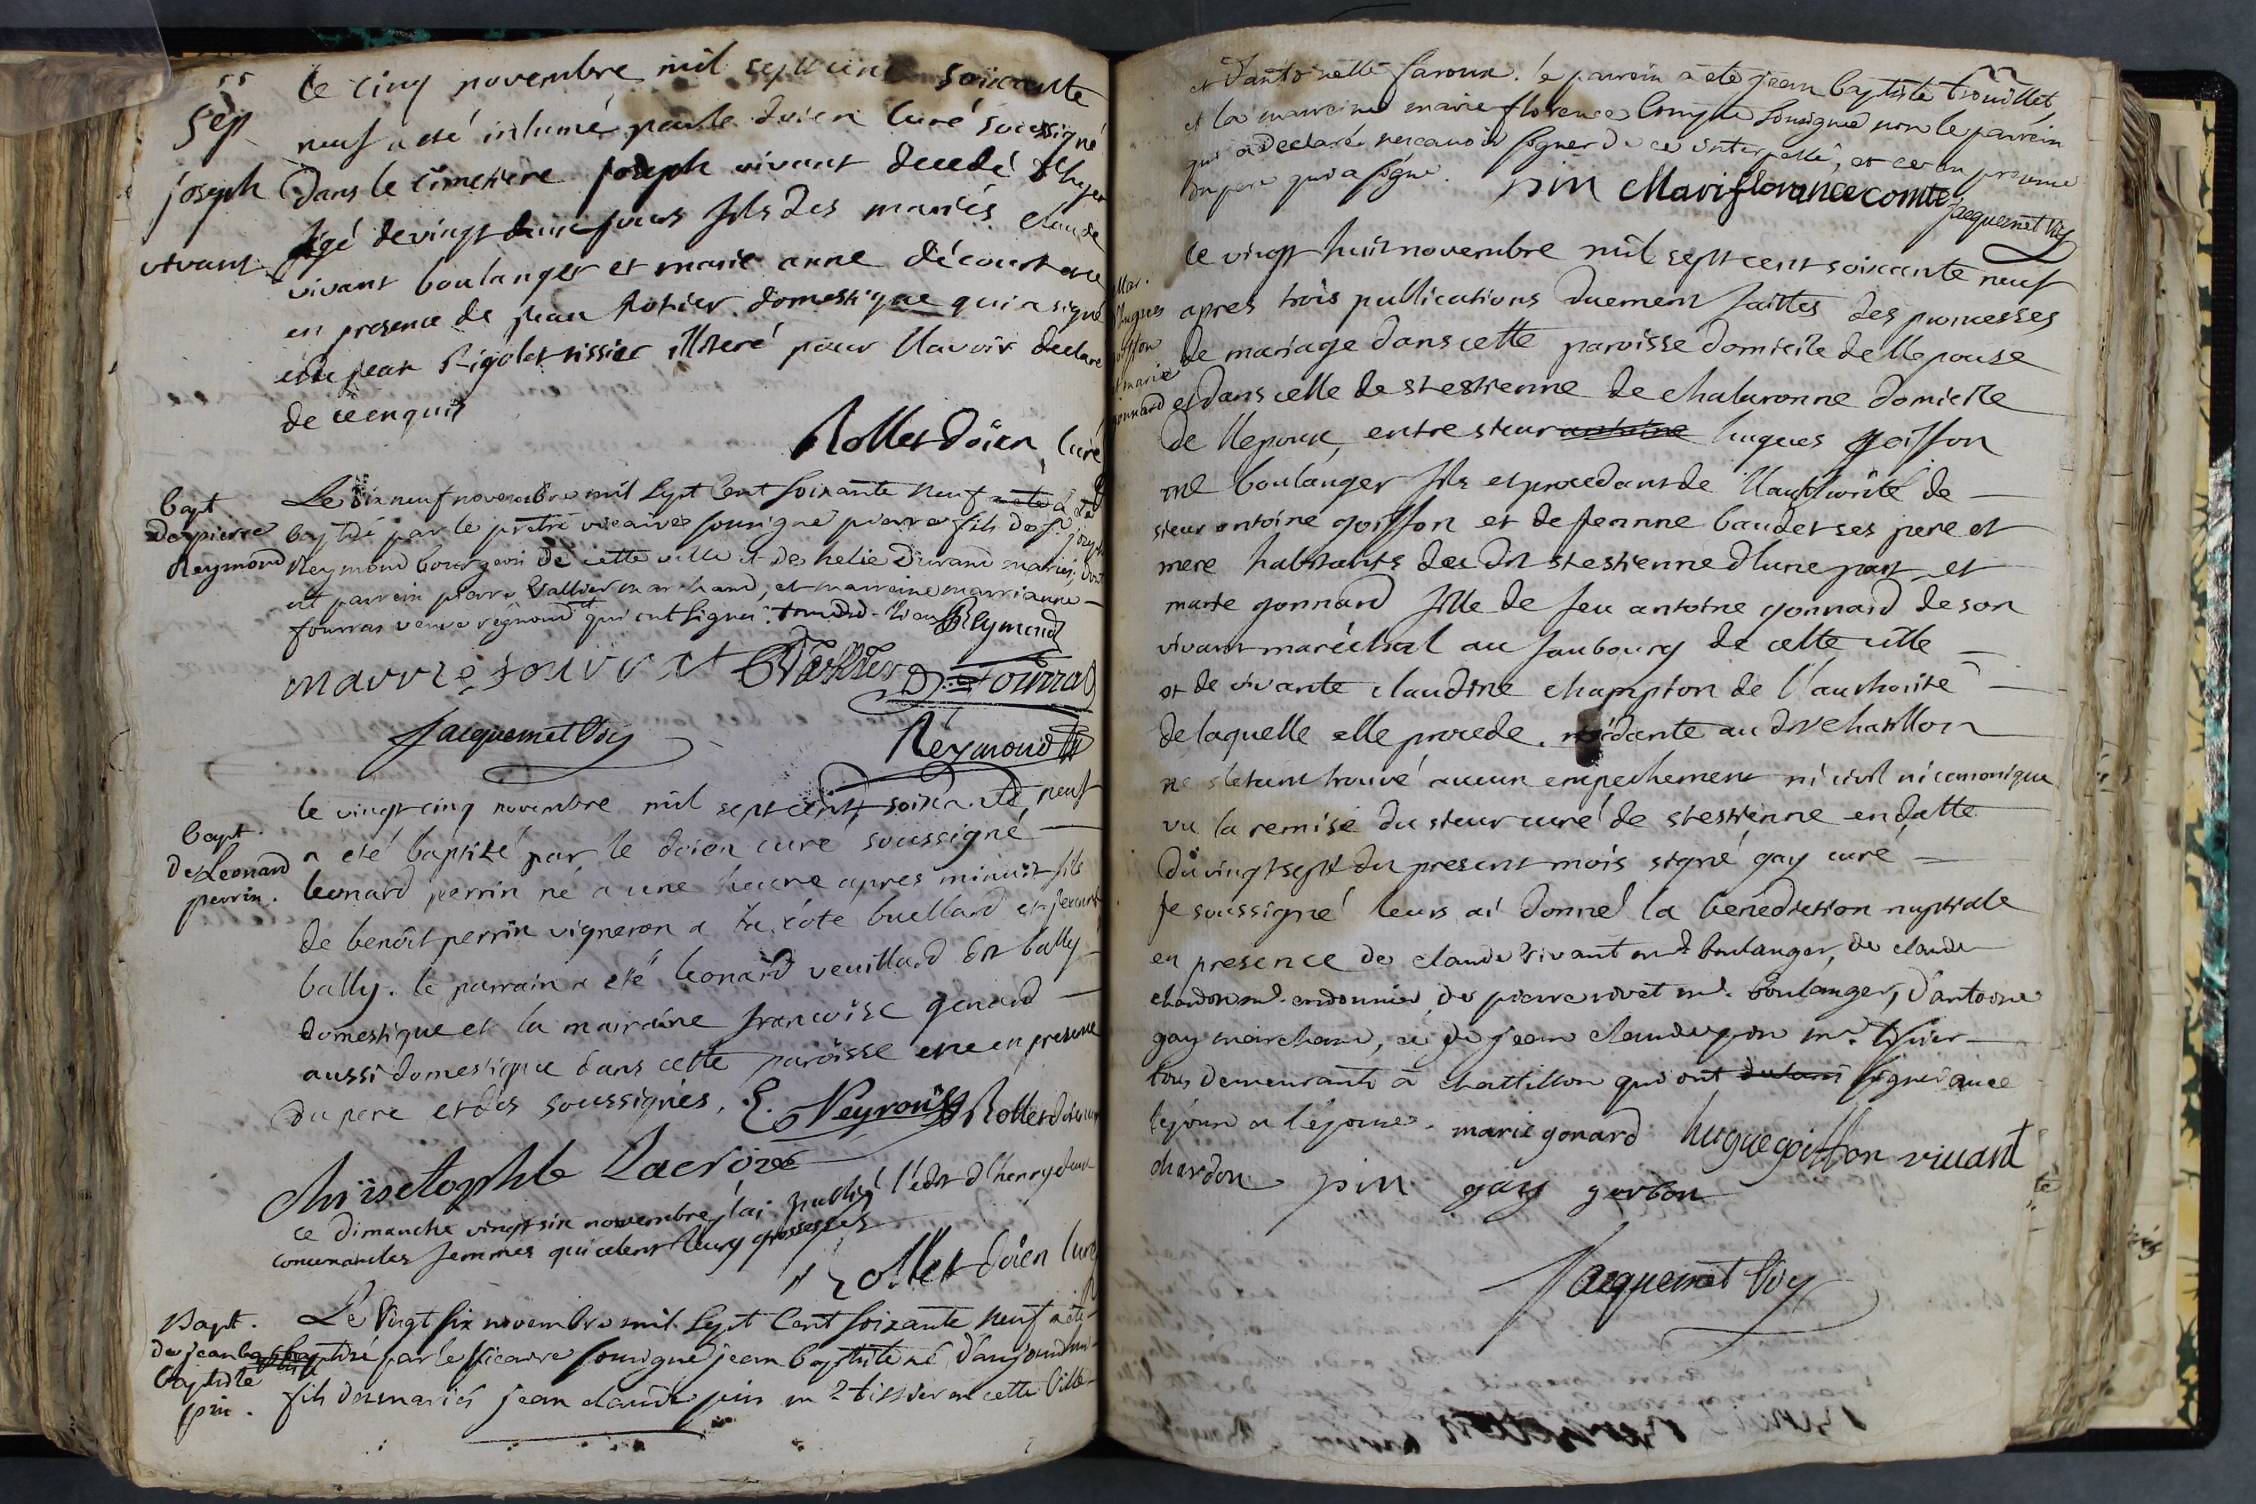 55
Sep
joseph
vivant
le cinq novembre mil sept cent soixante
neuf a eté inhumé par le doien curé soussigné
dans le cimetiere joseph vivant decedé d'hyer
agé de vingt deux jours fils des mariés claude
vivant boulanger et marie anne décourt
en presence de jean domestique qui a signé
et de jean Rigolet tissier illiteré pour l'avoir declaré
de ce enquis
Rollet doien curé
bapt
de pierre
Reymond
Le dix neuf novembre mil sept cent soixante neuf a eté
baptisé par le prêtre vicaire sousigné pierre fils de sr joseph
Reymond bourgeois de cette ville et des helie Durand mariés, dont
est parrein pierre Vallier marchand, et marreine marrianne
fourras veuve qui ont signé. Reymond
marrie fourrat Vallier D. Fourrat
Jacquemet Vic Reymond
bapt.
de Leonard
perrin.
le vingt cinq novembre mil sept cent soixante neuf
a eté baptizé par le doien curé soussigné
leonard perrin né a une heure apres minuit fils
de benoit perrin vigneron a la cote buellard et
bally. le parrain a eté leonard veuillard dit bally
domestique et la marraine francoise genard
aussi domestique dans cette paroisse en presence
du pere et des soussignés. E. Peyroust Rollet doien curé
chriistophle Lacroze
ce dimanche vingt six novembre j'ai publié l'edit d'henry deux
concernant les femmes qui celent leurs grossesses
Rollet doien curé
Bapt.
de jean
baptiste
pin.
Le Vingt six novembre mil sept cent soixante neuf a eté
baptisé par le vicaire sousigné jean baptiste né d'aujourdhui
fils des mariés jean claude pin md tissier en cette ville
et d'antoinette faroux. le parrein a eté jean baptiste trouillet,
et la marreine marie florence Compte sousignée non le parrein
qui a declaré ne scavoir signer de ce interpellé, et ce en presence
du pere qui a signé. pin Mariflorance comte
jacquemet Vic
Mar.
d'hugues
goiffon
et marie
gonnard
le vingt huit novembre mil sept cent soixante neuf
apres trois publications duement faittes des promesses
de mariage dans cette paroisse domicile de l'epouse
et dans celle de st estienne de chalaronne domicile
de l'epoux, entre sieur antoine hugues goiffon
me boulanger fils et procedant de l'authorité de
sieur antoine goiffon et de jeanne baudet ses pere et
mere habitants du dit st estienne d'une part et
marie gonnard fille de feu antoine gonnard de son
vivant maréchal au faubourg de cette ville
et de vivante claudine champion de l'authorité
de laquelle elle procede. residante au dit chatillon
ne s'etant trouvé aucun empechement ni civil ni canonique
vu la remise du sieur curé de st estienne en datte
du vingt sept du present mois signé gay curé
Je soussigné leurs ai donné la benediction nuptiale
en presence de claude vivant md boulanger, de claude
chardon md cordonnier, de pierre rivet md. boulanger, d'antoine
gay marchand, et de jean claude pin md. tissier
tous demeurants a chattillon qui ont signé avec
l'epoux et l'epouse. marie gonard hugue goiffon vivant
chardon pin gay gerbon
Jacquemet Vic